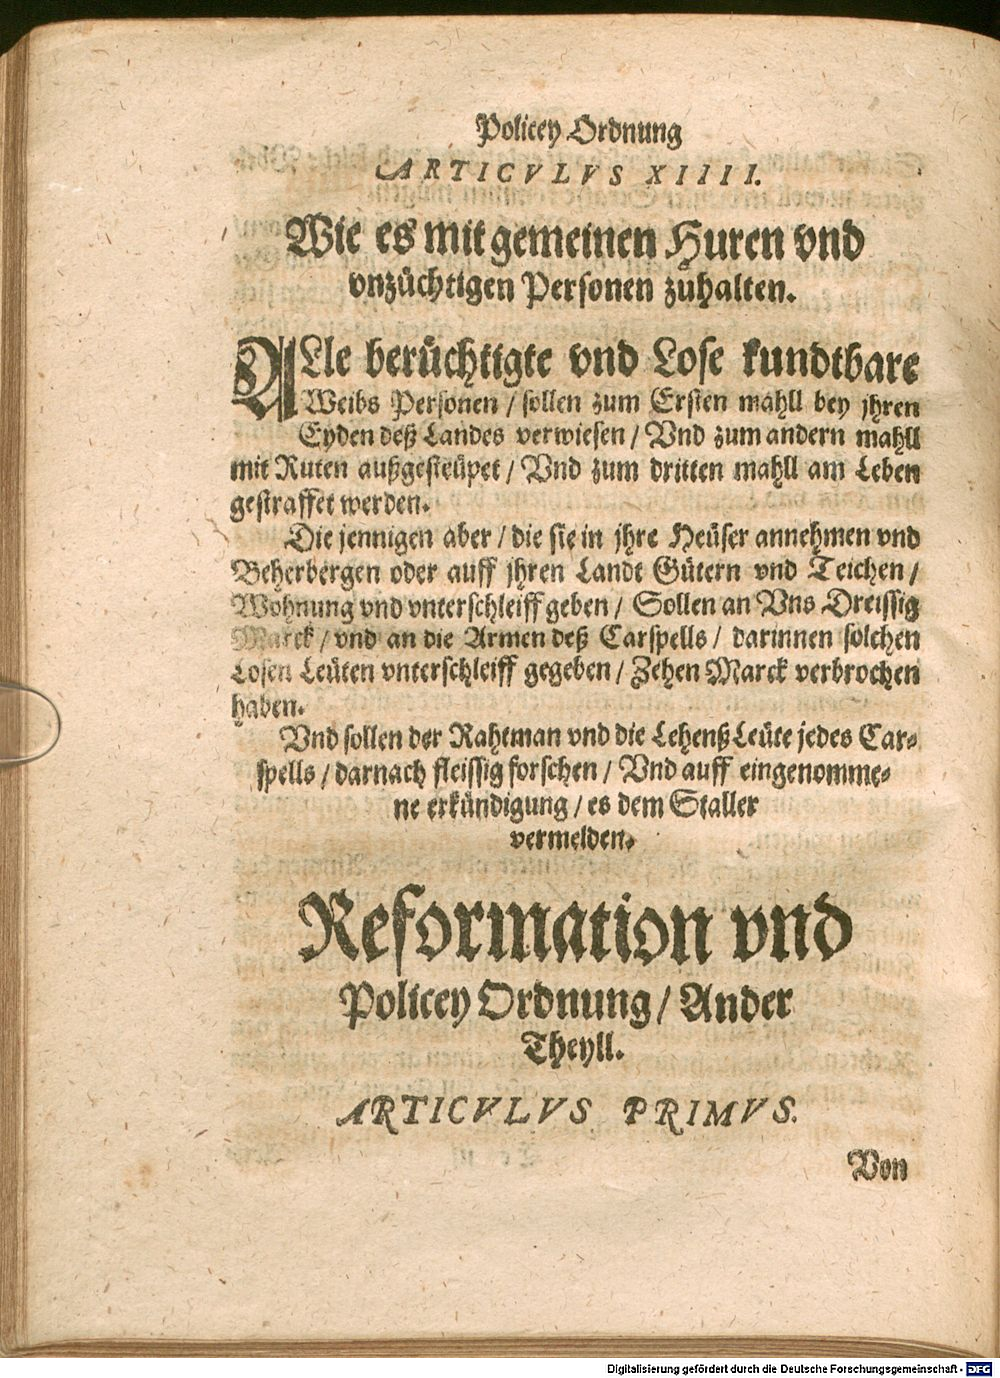 Policey Ordnung
ARTICVLVS XIIII.
Wie es mit gemeinen Huren vnd
vnzüchtigen Personen zuhalten.
ALle berüchtigte vnd Lose kundtbare
Weibs Personen / sollen zum Ersten mahll bey jhren
Eyden deß Landes verwiesen / Vnd zum andern mahll
mit Ruten außgesteüpet / Vnd zum dritten mahll am Leben
gestraffet werden.
Die jennigen aber / die sie in jhre Heüser annehmen vnd
Beherbergen oder auff jhren Landt Gütern vnd Teichen /
Wohnung vnd vnterschleiff geben / Sollen an Vns Dreissig
Marck / vnd an die Armen deß Carspells / darinnen solchen
Losen Leüten vnterschleiff gegeben / Zehen Marck verbrochen
haben.
Vnd sollen der Rahtman vnd die Lehenß Leüte jedes Car⸗
spells / darnach fleissig forschen / Vnd auff eingenomme⸗
ne erkündigung / es dem Staller
vermelden.
Reformation vnd
Policey Ordnung / Ander
Theyll.
ARTICVLVS PRIMVS.
Von
Digitalisierung gefördert durch die Deutsche Forschungsgemeinschaft - DFG